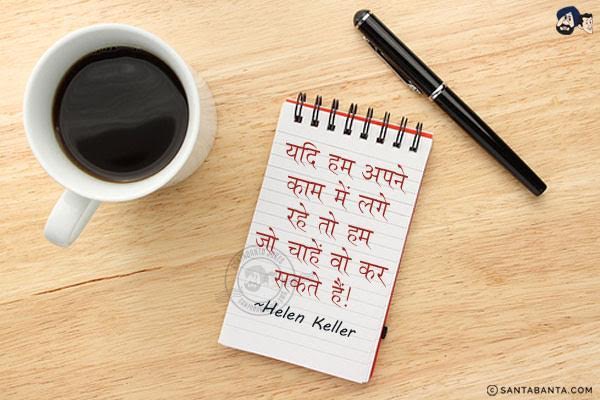 यदि हम अपने
काम में लगे
रहे तो हम
जो चाहें वो कर
सकते हैं!
~Helen Keller
© SANTABANTA.COM